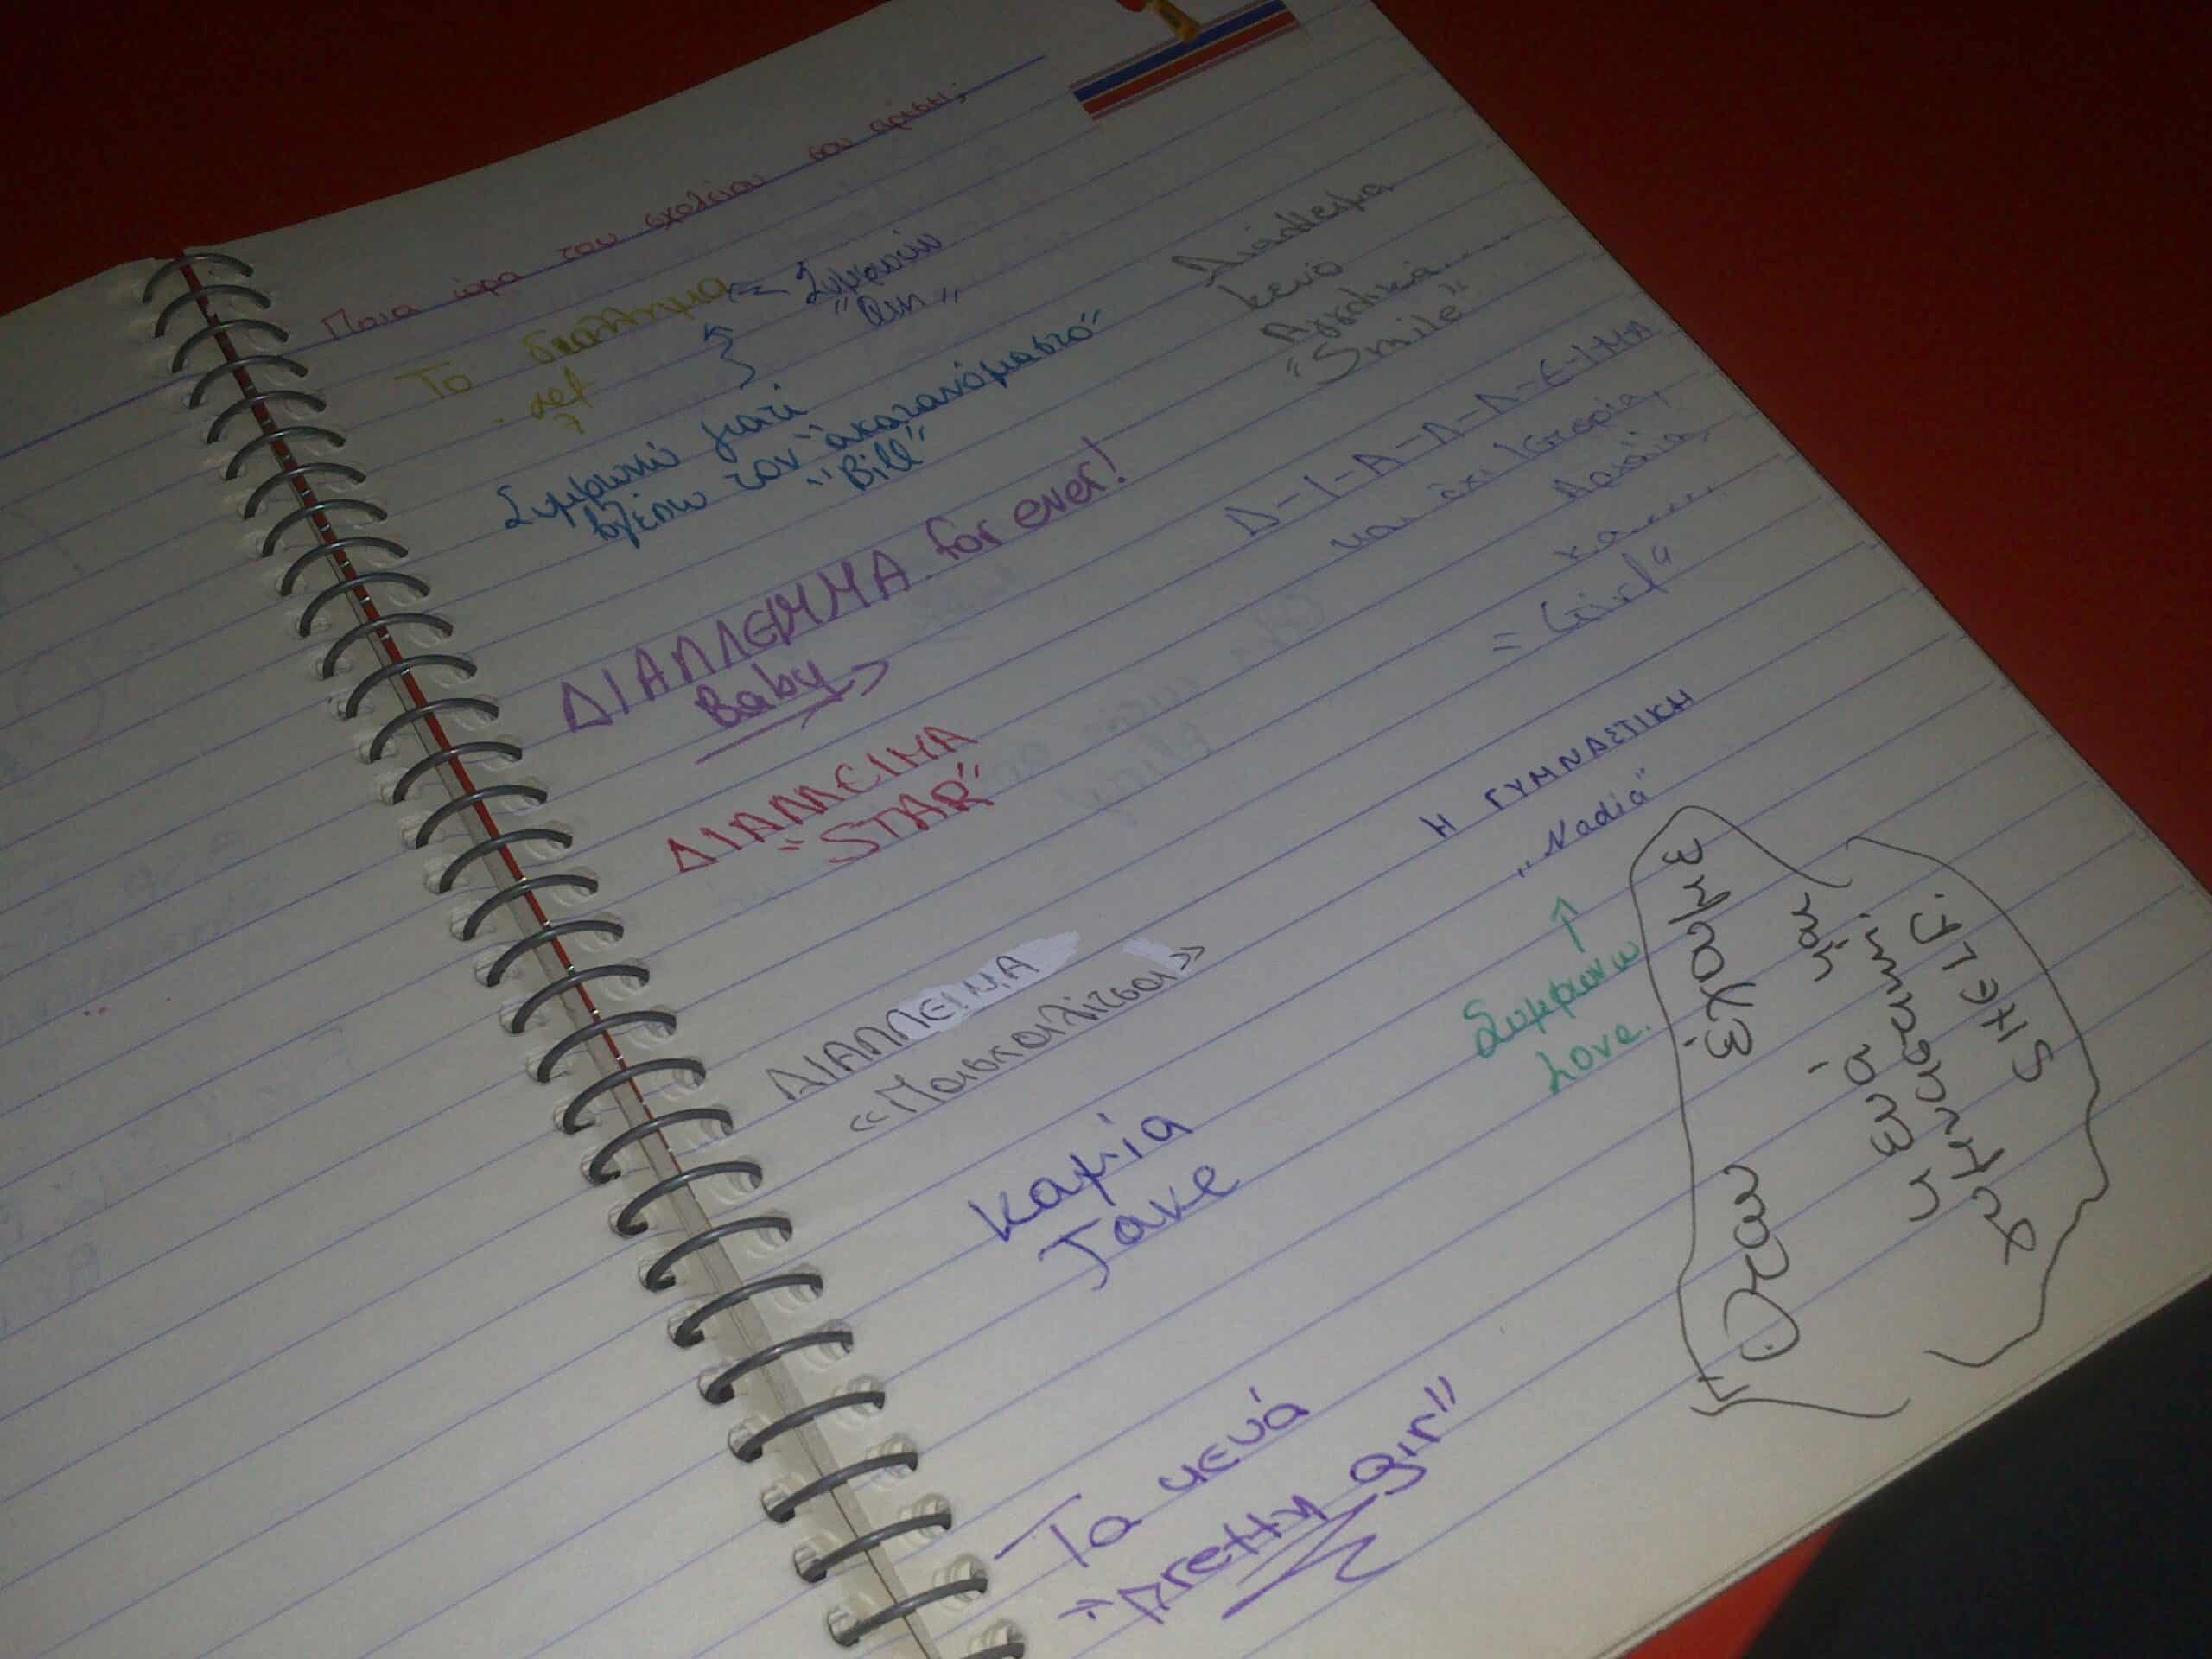 Ποια ώρα του σχολείου σου αρέσει;
Το διάλλημα
Συμφωνώ
Συμφωνώ γιατί
βλέπω τον "ακατανόμαστο"
"Bill"
ΔΙΑΛΛΕΙΜΜΑ for ever!
Baby
ΔΙΑΛΛΕΙΜΑ
"STAR"
ΔΙΑΛΛΕΙΜΑ
«Παισκοιλίτσαι»
Καμία
Jake
Τα κενά
"Pretty girl"
Διάλλειμα
κενό
Αγγλικά....
"Smile"
Δ-Ι-Α-Λ-Λ-Ε-Ι-ΜΑ
και όχι Ιστορία,
Αρχαία,
κ.α....
"Girl"
Η ΓΥΜΝΑΣΤΙΚΗ
"Nadia"
Συμφωνω
Love.
Όταν έχουμε
κενά
γυμναστική